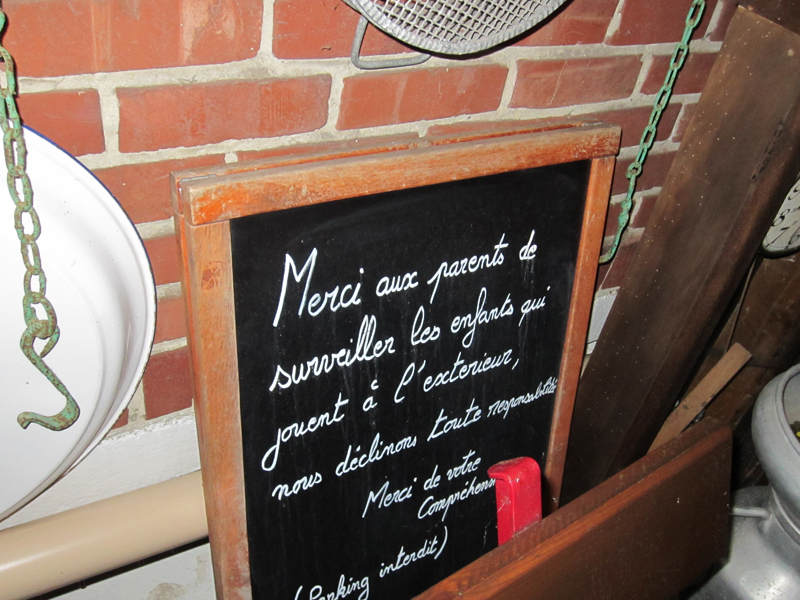 Merci aux parents de
surveiller les enfants qui
jouent à l'exterieur,
nous déclinons toute responsabilité
Merci de votre
Compréhen
(Parking interdit)